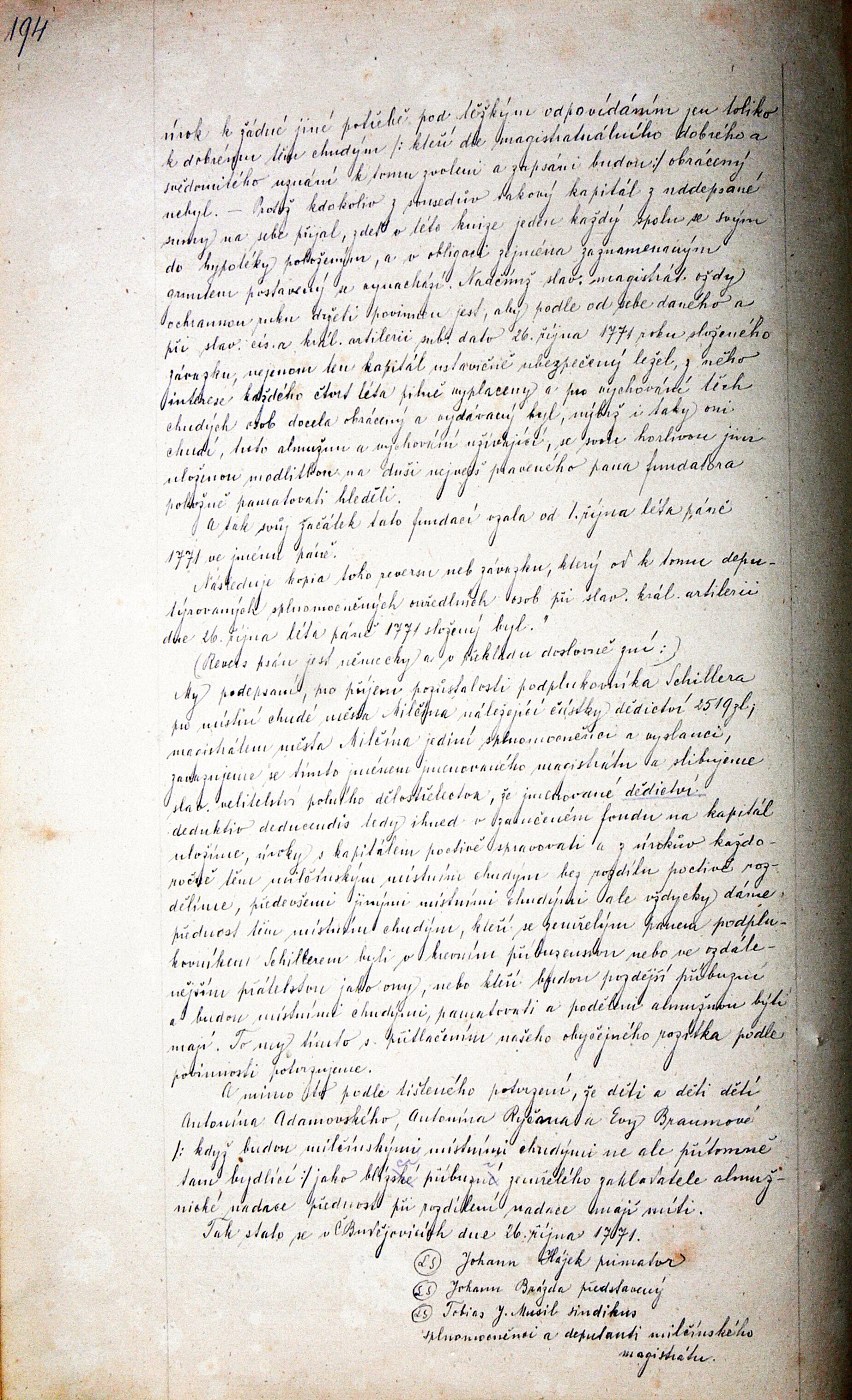 194
úrok k žádné jiné potřebě pod těžkým odpovídáním jen toliko
k dobrému těm chudým /: kteří dle magistratuálního dobrého a
svědomitého uznání k tomu zvoleni a zapsáni budou :/ obrácený
nebyl. — Protož kdokoliv z sousedův takový kapitál z nddepsané
sumy na sebe přijal, zde v této knize jeden každý spolu se svým
do hypotéky položeným, a v obligaci zejména zaznamenaným
gruntem postavený se vynachází. Nadčímž slav. magistrát vždy
ochrannou ruku držeti povinnen jest, aby podle od sebe daného a
při slav. cís. a král. artilerii sub. dato 26. října 1771 roku složeného
závazku, nejenom ten kapitál ustavičně ubezpečený ležel, z něho
interese každého čtvrt léta pilně vyplaceny a pro vychování těch
chudých osob docela obrácený a vydávaný byl, nýbrž i taky oni
chudí, tuto almužnu a vychování užívající, se svou horlivou jim
uloženou modlitbou na duši nejvejš praveného pana fundatora
pobožně pamatovati hleděli.
A tak svůj začátek tato fundací vzala od 1. října léta páně
1771 ve jménu páně.
Následuje kopia toho reversu neb závazku, který od k tomu depu-
týrovaných splnomocněných ouředlních osob při slav. král. artilerii
dne 26. října léta páně 1771 složený byl."
(Revers psán jest německy a v překladu doslovně zní:)
My podepsaní, pro příjem pozůstalosti podplukovníka Schillera
pro místní chudé města Milčína náležející částky dědictví 2519 zl,
magistrátem města Milčína jediní splnomocněníci a vyslanci,
zavazujeme se tímto jménem jmenovaného magistrátu a slibujeme
slav. velitelství polního dělostřelectva, že jmenované dědictví
deduktis deducendis tedy ihned v zaručeném fondu na kapitál
uložíme, úroky s kapitálem poctivě spravovati a z úrokův každo-
ročně těm milčínským místním chudým bez rozdílu poctivě roz-
dělíme, předevšemi jinými místními chudými ale vždycky dáme
přednost těm místním chudým, kteří se zemřelým panem podplu-
kovníkem Schillerem byli v krevním příbuzenstvu nebo ve vzdále-
nějším přátelstvu jako ony, nebo kteří budou pozdější příbuzní
a budou místními chudými, pamatovati a poděleni almužnou býti
mají. To my tímto s přitlačením našeho obyčejného razítka podle
povinnosti potvrzujeme.
A mimo to podle tištěného potvrzení, že děti a děti dětí
Antonína Adamovského, Antonína Ryčana a Evy Braumové
/: když budou milčínskými místními chudými ne ale přítomně
tam bydlící :/ jako blízké příbuzné zemřelého zakladatele almuž-
nické nadace přednost při rozdílení nadace mají míti.
Tak stalo se v Č. Budějovicích dne 26. října 1771.
LS Johann Hájek primator
LS Johann Brázda představený
LS Tobias J. Musil sindikus
splnomocněnci a deputanti milčínského
magistrátu.